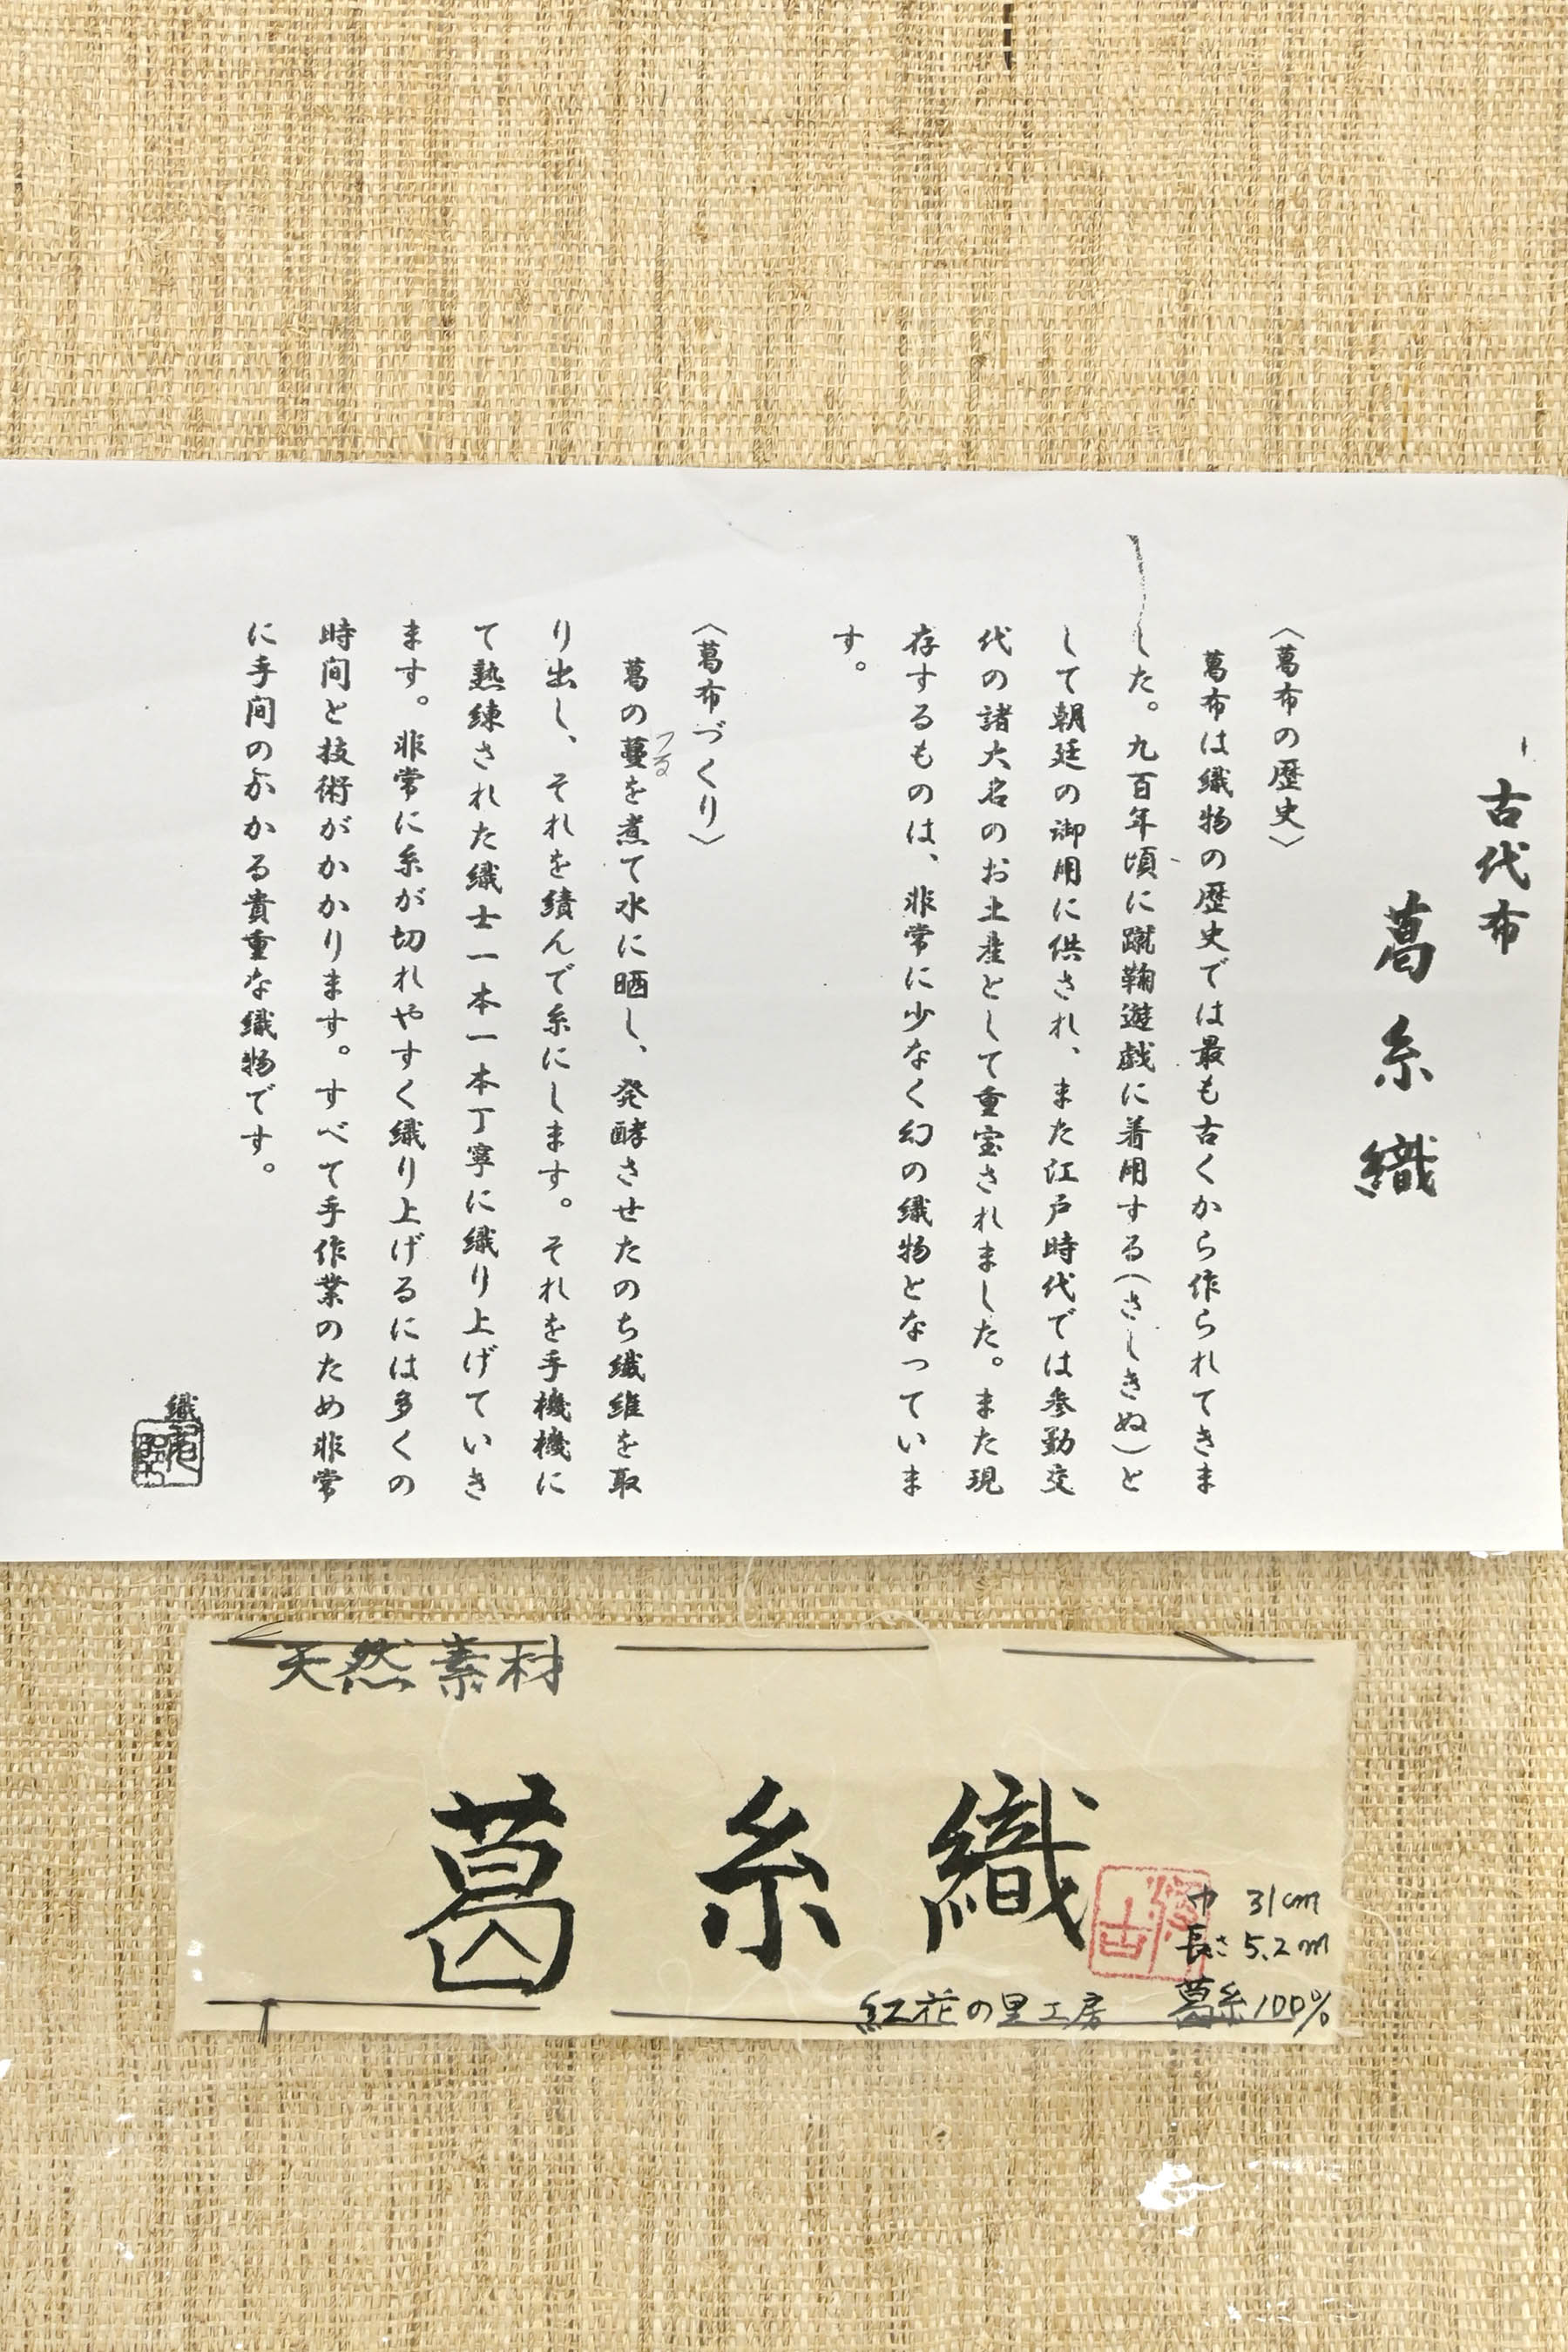 古代布
葛糸織
〈葛布の歴史〉
葛布は織物の歴史では最も古くから作られてきま
した。九百年頃に蹴鞠遊戯に着用する(さしきぬ)と
して朝廷の御用に供され、また江戸時代では参勤交
代の諸大名のお土産として重宝されました。また現
存するものは、非常に少なく幻の織物となっていま
す。
〈葛布づくり〉
つる
葛の蔓を煮て水に晒し、発酵させたのち繊維を取
り出し、それを績んで糸にします。それを手機機に
て熟練された織士一本一本丁寧に織り上げていき
ます。非常に糸が切れやすく織り上げるには多くの
時間と技術がかかります。すべて手作業のため非常
に手間のかかる貴重な織物です。
織
天然素材
葛糸織
巾 31cm
長さ 5.2m
紅花の里工房 葛糸100%